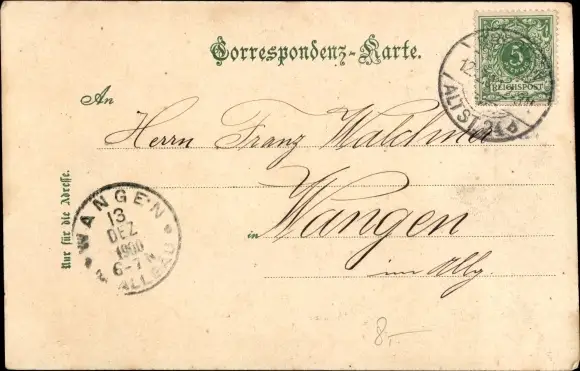 Correspondenz-Karte.
5
REICHSPOST
12
ALTSTADT
An
Herrn Franz
in Wangen
im Allg.
Nur für die Adresse.
WANGEN
13
DEZ
1900
6-7N
ALLGÄU
8,-